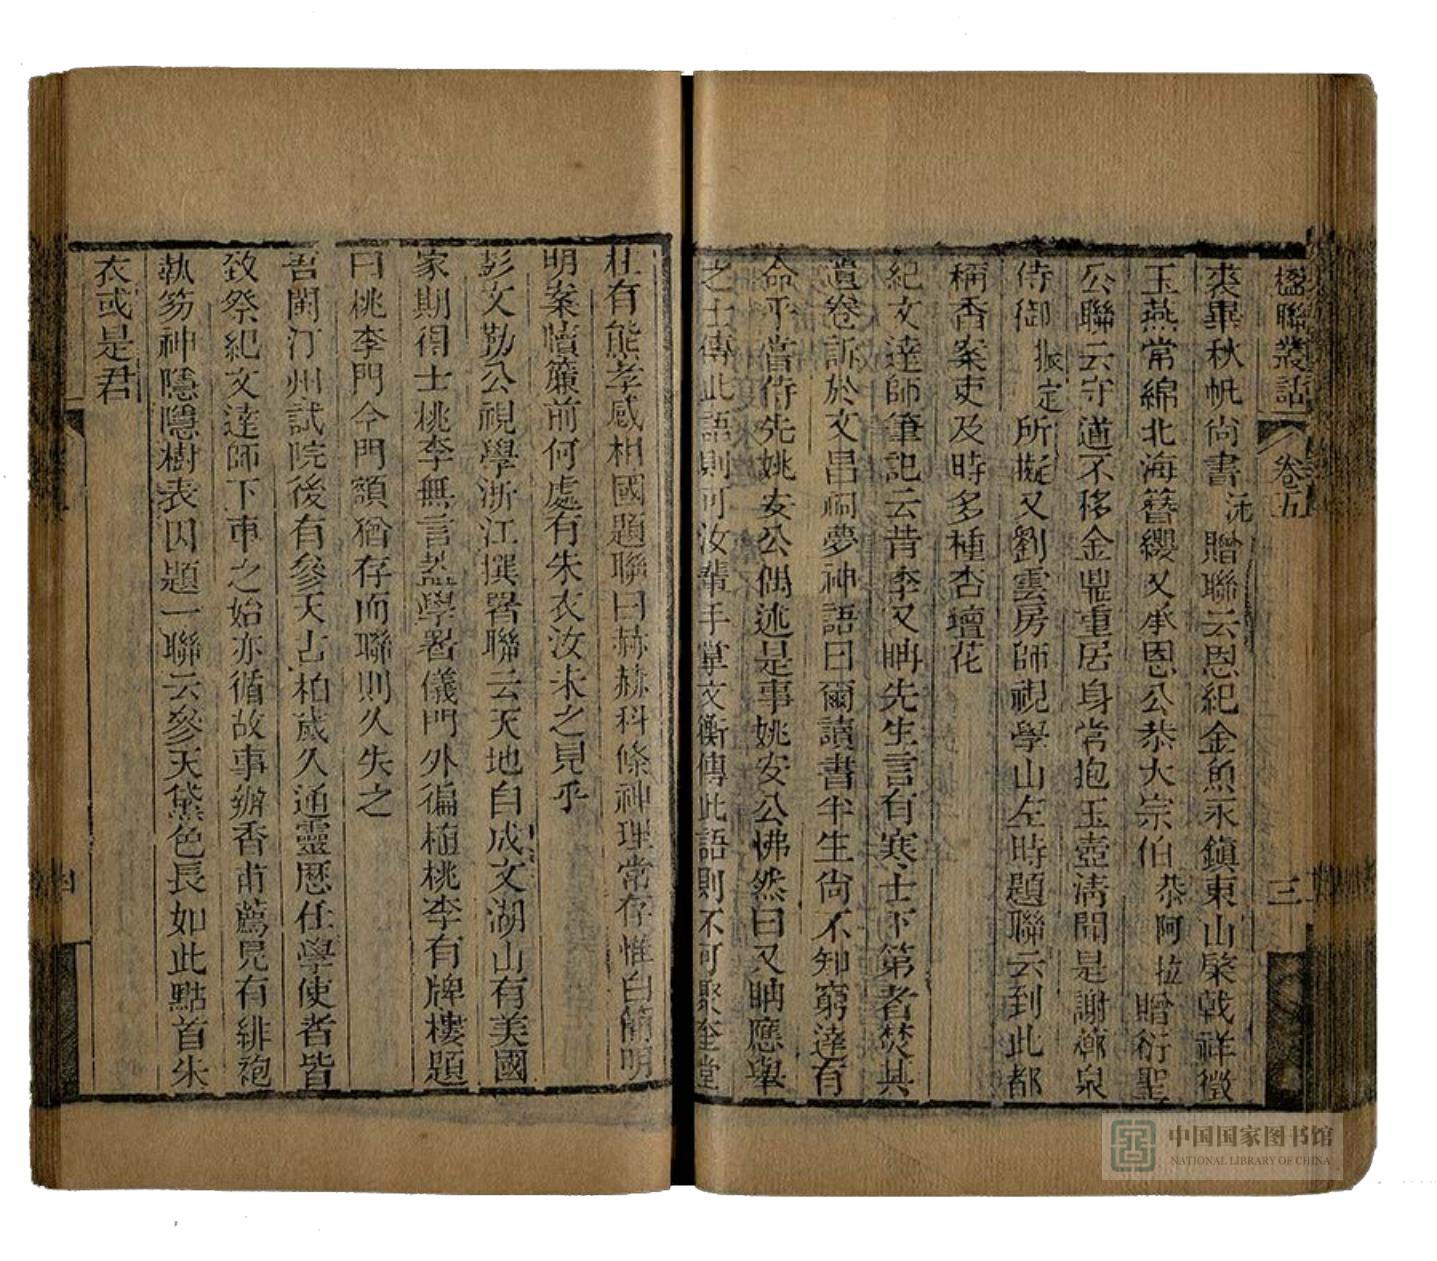 楹聯叢話 卷五 三
裘畢秋帆尚書沅贈聯云恩紀金魚永鎮東山棨戟祥徵
玉燕常綿北海簪纓又承恩公恭大宗伯恭阿拉贈衍聖
公聯云守道不移金鼎重居身常抱玉壺清間是謝薌泉
侍御振定所擬又劉雲房師視學山左時題聯云到此都
稱香案吏及時多種杏壇花
紀文達師筆記云昔李又聃先生言有寒士下第者焚其
遺卷訴於文昌祠夢神語曰爾讀書半生尚不知窮達有
命乎嘗侍先姚安公偶述是事姚安公怫然曰又聃應舉
之士傳此語則可汝輩手掌文衡傳此語則不可聚奎堂
柱有熊孝感相國題聯曰赫赫科條袖理常存惟白簡明
明案牘簾前何處有朱衣汝未之見乎
彭文勤公視學浙江撰署聯云天地自成文湖山有美國
家期得士桃李無言蓋學署儀門外徧植桃李有牌樓題
曰桃李門今門額猶存而聯則久失之
吾閩汀州試院後有參天古柏歲久通靈歷任學使者皆
致祭紀文達師下車之始亦循故事辦香甫薦見有緋袍
執笏神隱隱樹表因題一聯云參天黛色長如此點首朱
衣或是君
中国国家图书馆
NATIONAL LIBRARY OF CHINA